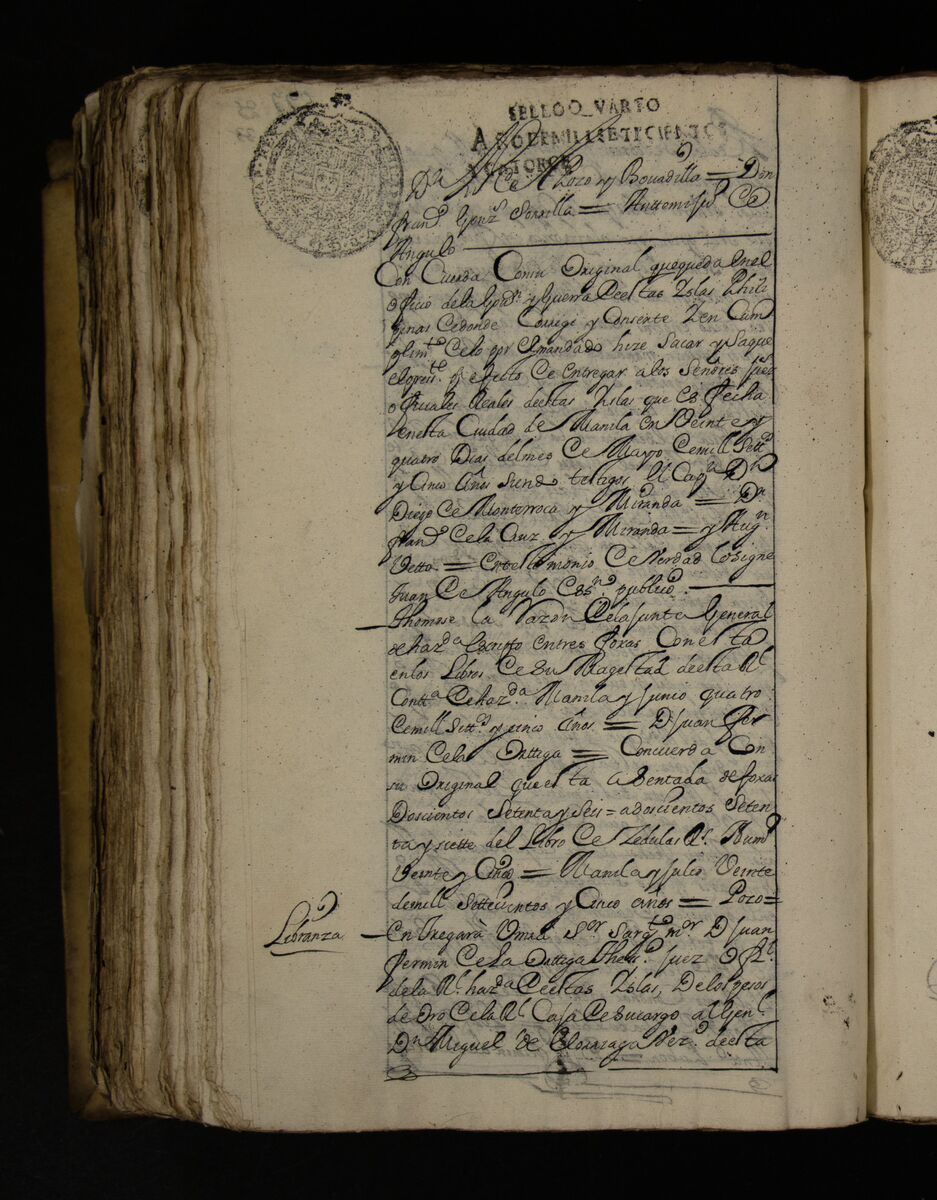 SELLO QVARTO
AÑO DE MIL SETECIENTOS
Y CATORCE
de Alozo y Bouadilla = Don
Fran.co Gonz.s Sorrilla = Antemi Ju.o de
Angulo
Con Cuerda Consu Original que queda En el
oficio dela Gou.n y Guerra Deestas Yslas Phili
pinas dedonde Corregi y Conserte Y en Cum
plim.to delo por Su mandado hize Sacar y Saque
elpres.te p.a efecto de entregar alos Señores Jues
ofiziales Reales destas Yslas que es fecha
enesta Ciudad de Manila en Veinte y
quatro Dias delmes de Mayo demill Sett.os
y Cinco años siendo testigos El Cap.n D.n
Diego de Monterroca y Miranda = D.n
Fran.co dela Cruz y Miranda = y Aug.n
Vetta = En testimonio de Verdad losigne
Juan de Angulo Ess.no publico
Thomose la Razon Dela Junta General
de haz.da Escripto entres foxas Con esta
enlos Libros de Su Magestad deesta R.l
Cont.a De haz.da Manila y Junio quatro
demill Sett.os y cinco años = D. Juan Fer
min dela Orttega = Concuerda Con
su Original que esta asentada defoxas
Doscientos Setenta y Seis = adoscientos Seten
ta y siette del Libro de Zedulas R.s Num.o
Veinte y Cinco = Manila y Julio Veinte
demill Settecientos y Cinco años = Pozo =
Libranza
Entregarà Vmd el S.or Sarg.to m.or D Juan
Fermin de la Orttega Thes.o Juez Of.l R.l
de la R.l haz.da Deestas Yslas, Delos pesos
de Oro dela R.l Caja Desucargo al Gen.l
D.n Miguel de Eloriaga Vez.o deesta